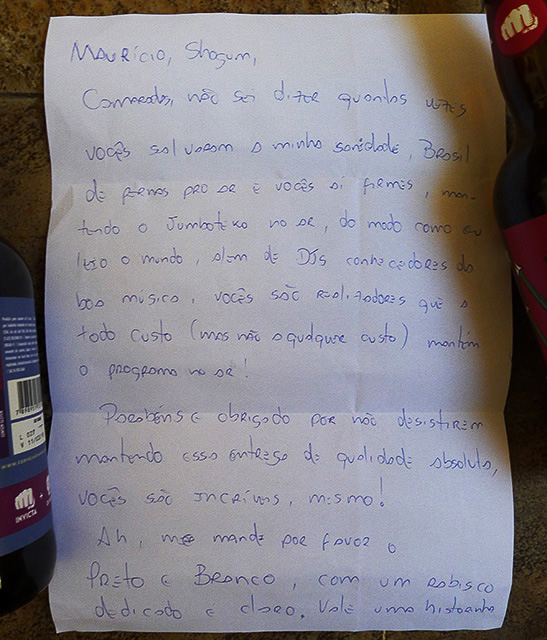 Maurício, Shogum,
Camaradas, não sei dizer quantas vezes
vocês salvaram a minha sanidade, Brasil
de pernas pro ar e vocês aí firmes, man-
tendo o Jumboteko no ar, do modo como eu
leio o mundo, além de DJs conhecedores da
boa música, vocês são realizadores que a
todo custo (mas não a qualquer custo) mantém
o programa no ar!
Parabéns e obrigado por não desistirem
mantendo essa entrega de qualidade absoluta,
vocês são incríveis, mesmo!
Ah, me mande por favor o
Preto e Branco, com um rabisco
dedicado e claro. Vale uma historinha
INVICTA